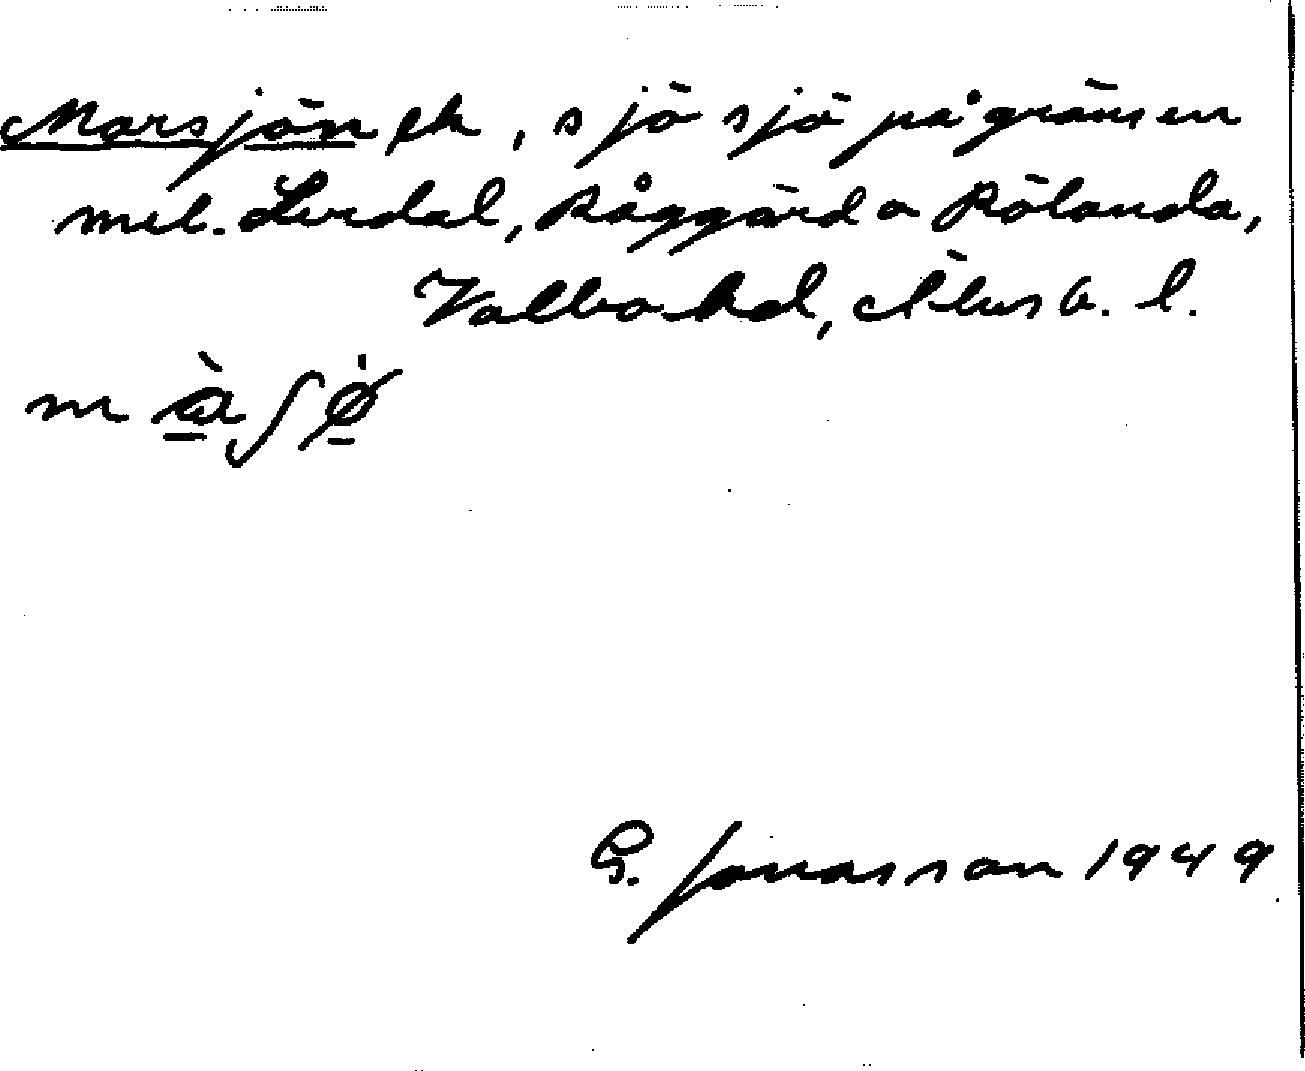 Marsjön ek, sjö sjö på gränsen
mel. Lerdal, Råggärd o Rölanda,
Valbo hd, Älvsb. l.
m å̱ ʃ ø̱
G. Jonasson 1949